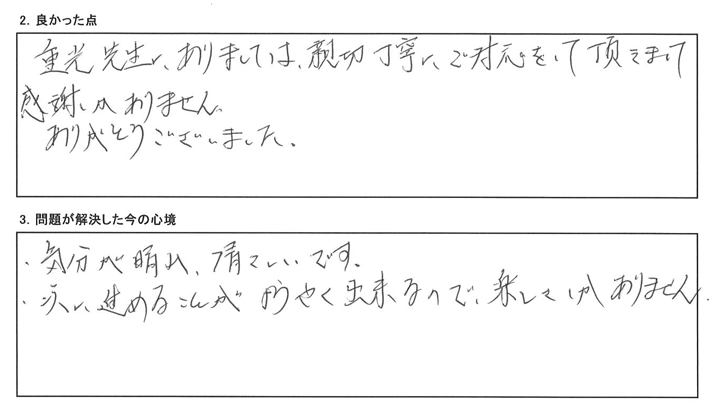 2. 良かった点
重光先生に、ありましては、親切丁寧に、ご対応をして頂きまして
感謝しかありません。
ありがとうございました。
3. 問題が解決した今の心境
・気分が晴れ、清々しいです。
・次に進めることがようやく出来るので、楽しみしかありません。